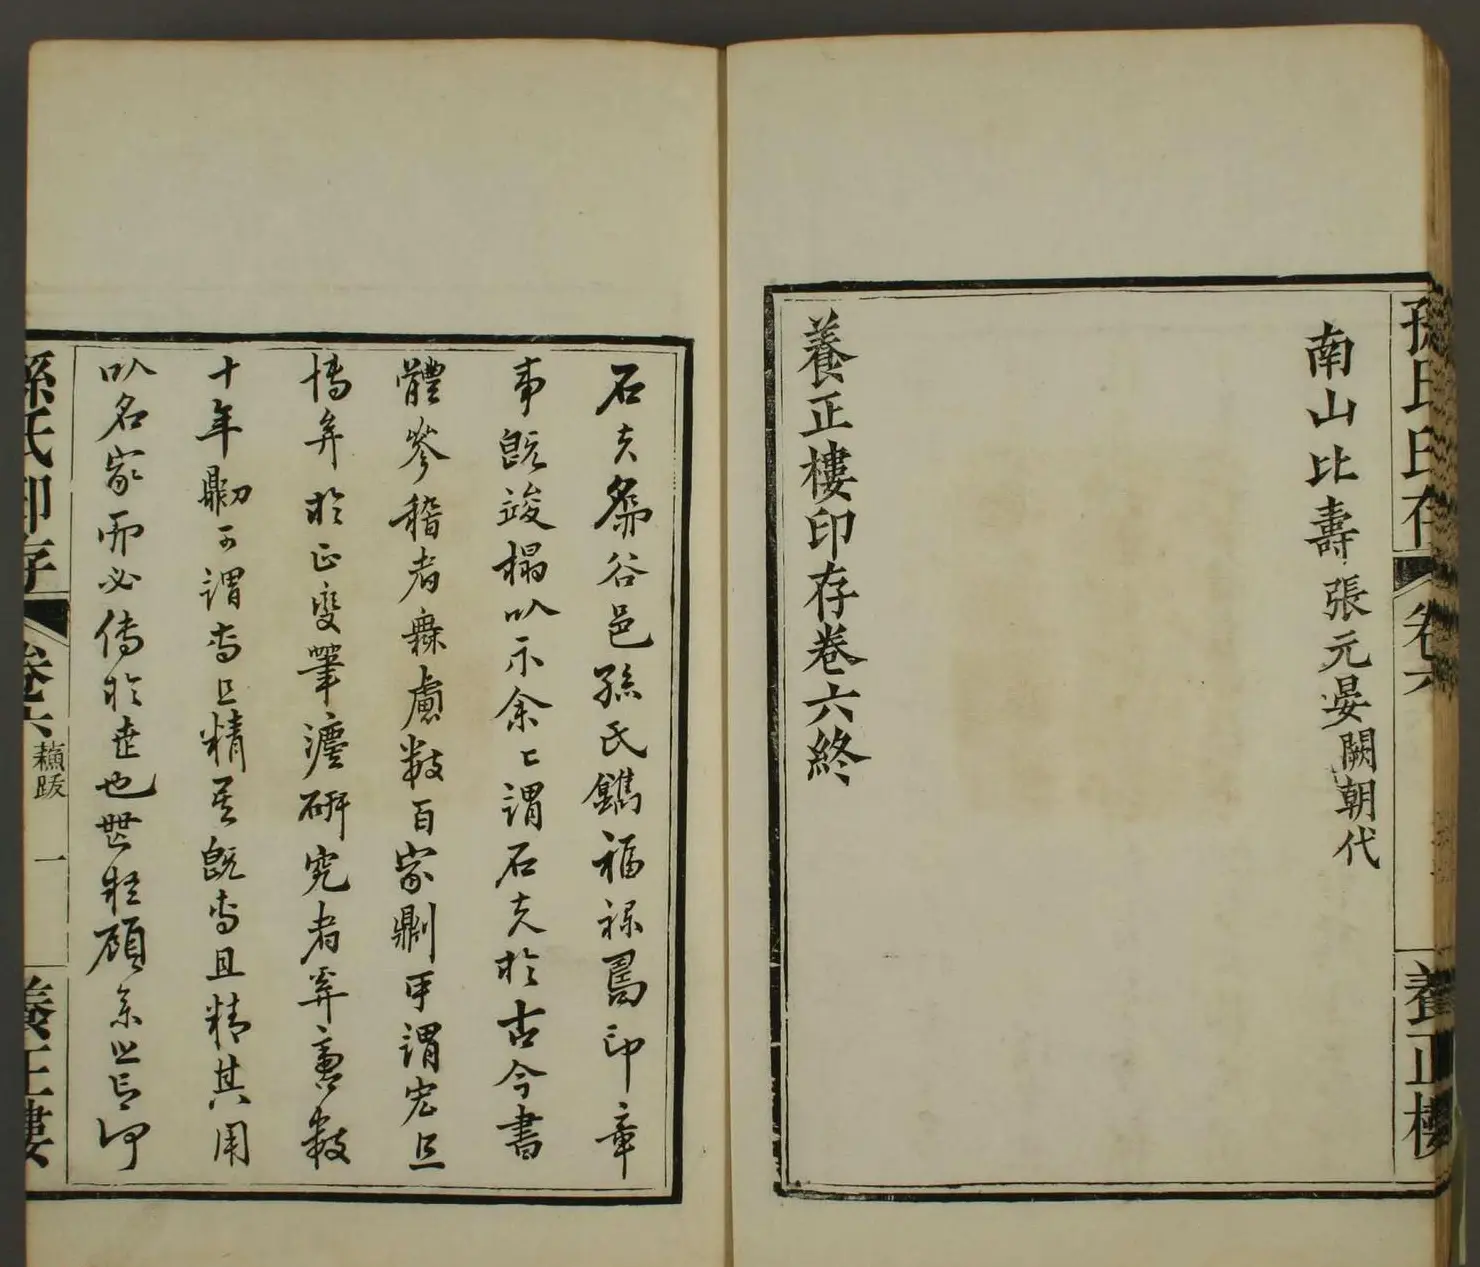 孫氏印存
卷六
養正樓
南山比壽張元晏闕朝代
養正樓印存卷六終
石夫爲太谷邑孫氏鐫福祿鴛印章
事既竣榻以示余余謂石夫於古今書
體參稽者無慮數百家劑可謂宏且
博矣於正變筆法研究者幷裏數
十年劬可謂專且精矣既專且精其用
以名家而必傳於世也無疑顧余之言印
孫氏印存
卷六
蘇跋
一
養正樓